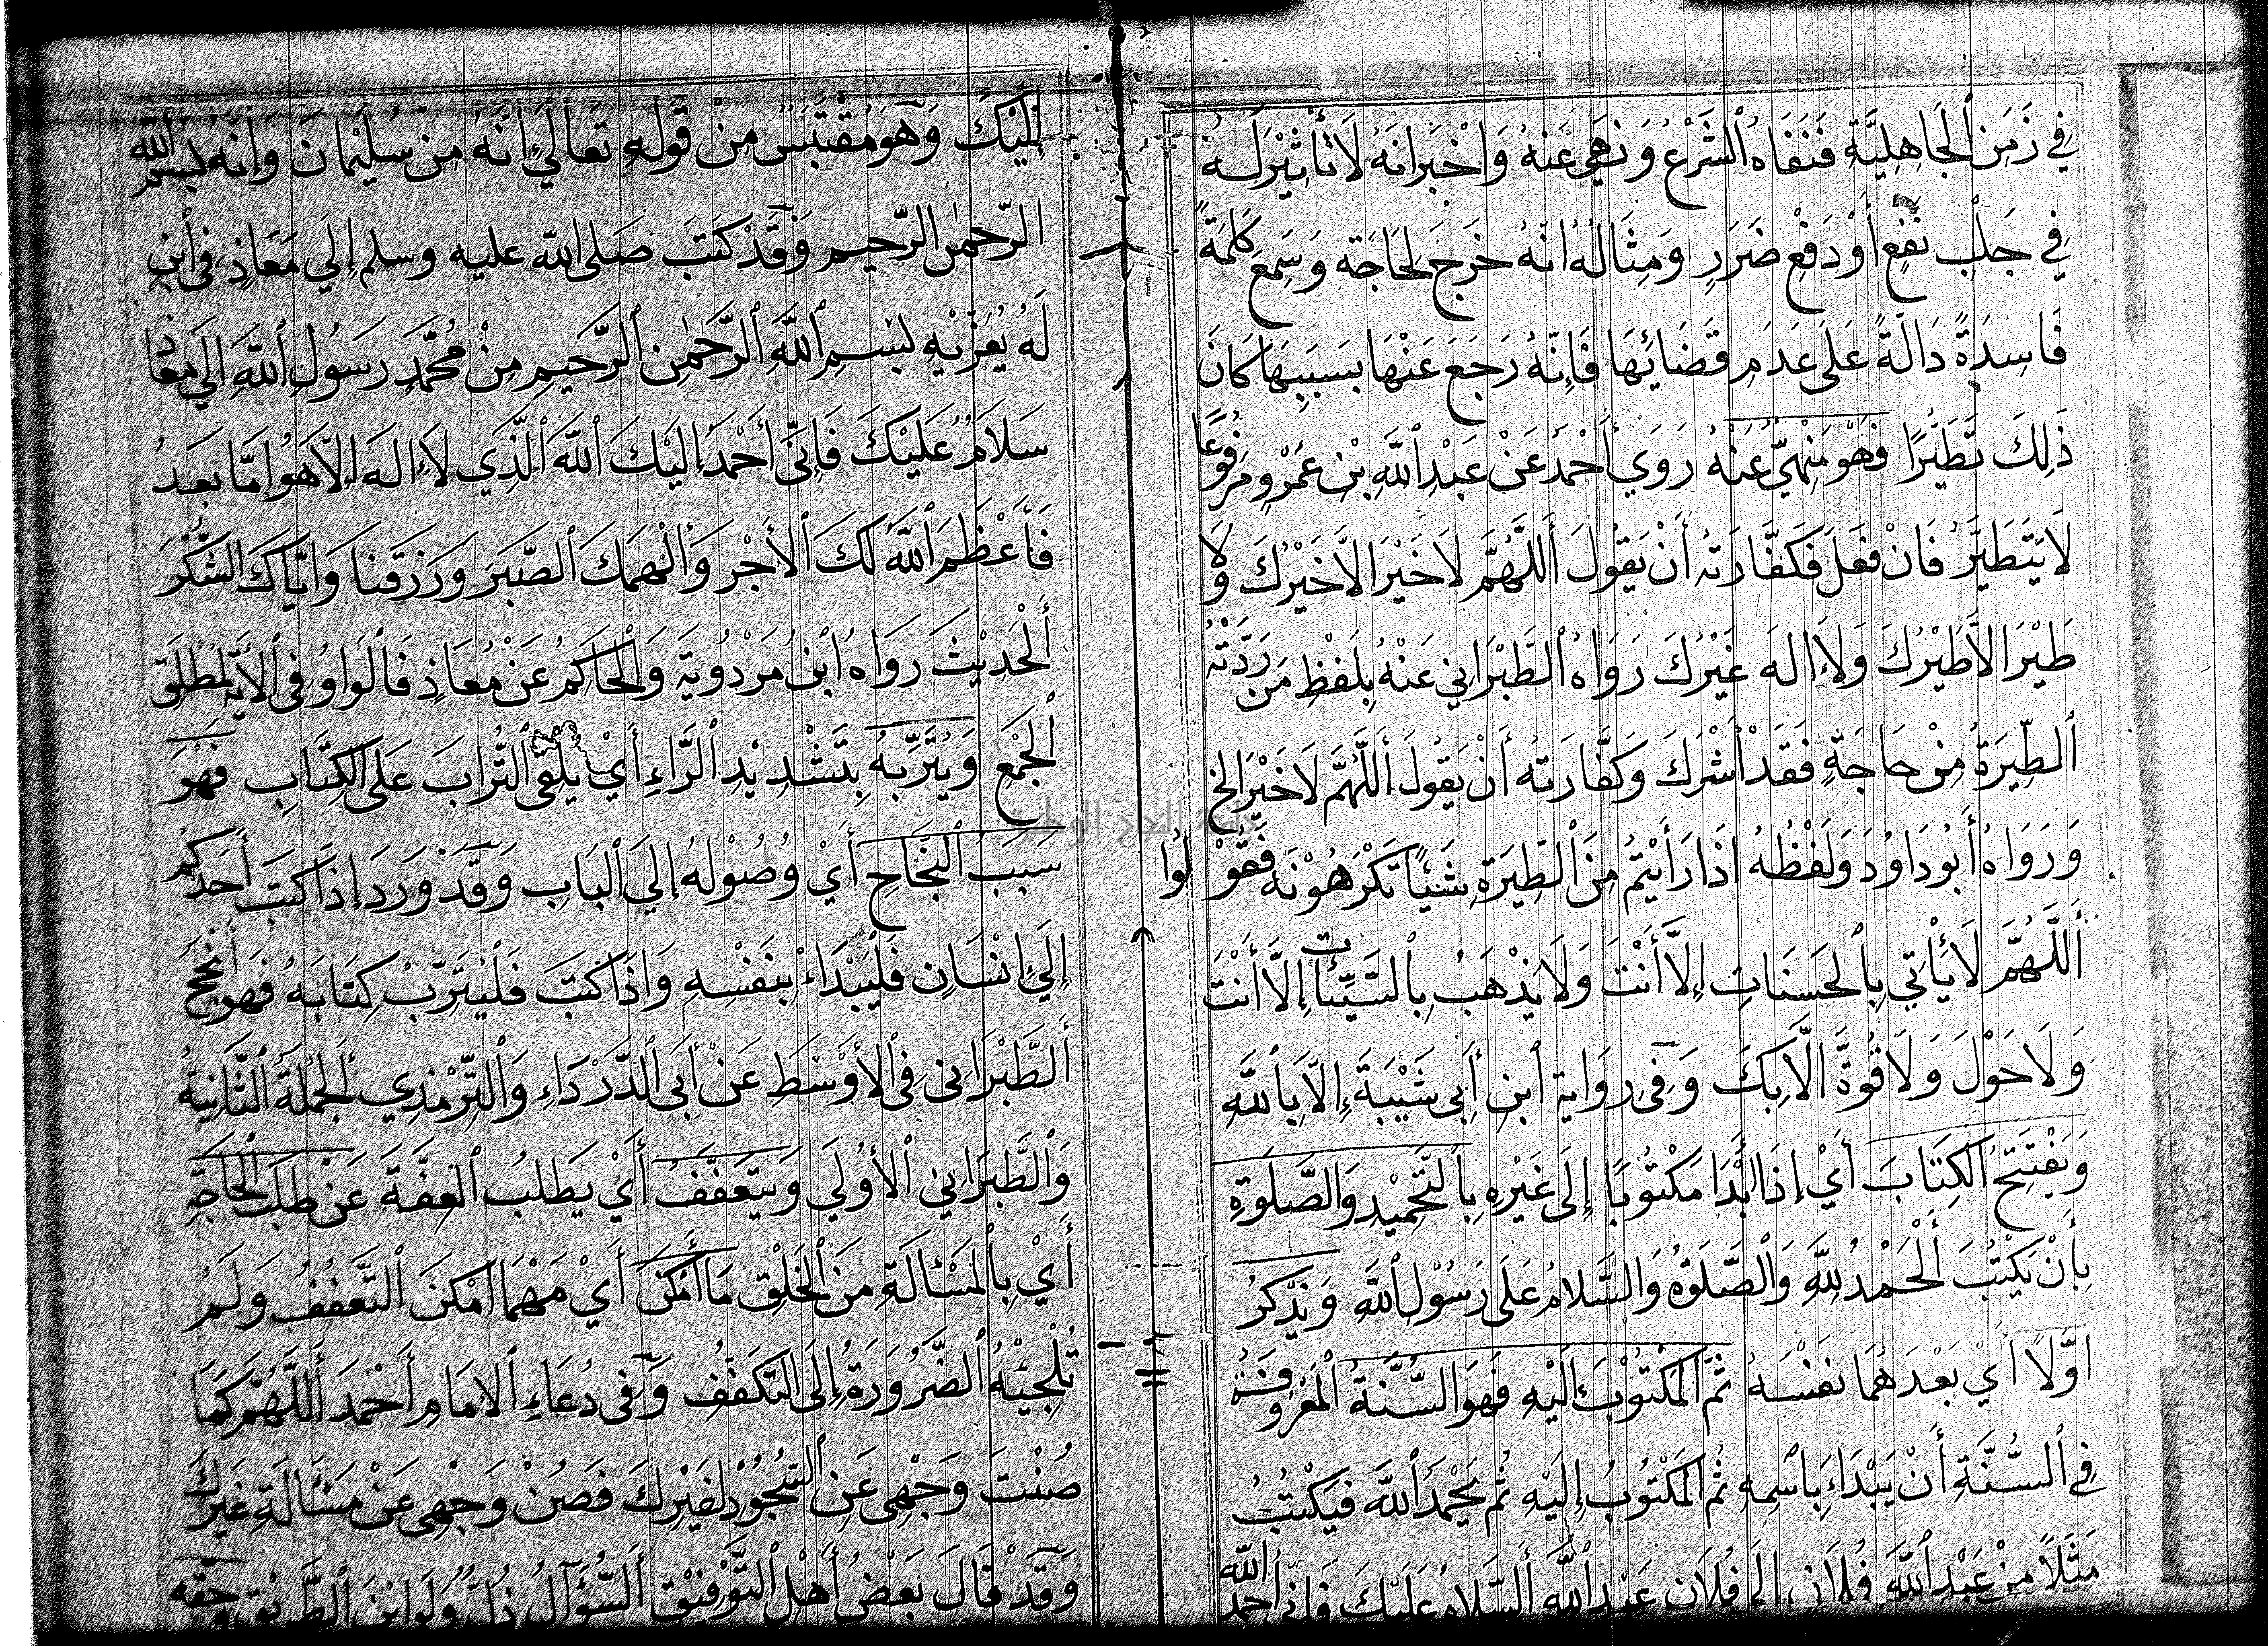 فِي زَمَنِ ٱلْجَاهِلِيَّةِ فَنَفَاهُ ٱلشَّرْعُ وَنَهَي عَنْهُ وَاَخْبَرَ اَنَّهُ لَا تَأْثِيْرَ لَه
فِي جَلْبِ نَفْعٍ أَوْ دَفْعِ ضَرَرٍ وَمِثَالُهُ اَنَّهُ خَرَجَ لِحَاجَةٍ وَسَمِعَ كَلِمَةً
فَاسِدَةً دَالَّةً عَلَى عَدَمِ قَضَائِهَا فَإِنَّهُ رَجَعَ عَنْهَا بِسَبَبِهَا كَانَ
ذَلِكَ تَطَيُّرًا فَهْوَ مَنْهِيٌّ عَنْهُ رَوَي أَحْمَدُ عَنْ عَبْدِ ٱللَّهِ بْنِ عَمْرٍو مَرْفُوعًا
لَا يَتَطَيَّرُ فَاِنْ فَعَلَ فَكَفَّارَتُهُ أَنْ يَقُولَ أَللَّهُمَّ لَا خَيْرَ اِلَّا خَيْرُكَ وَلَا
طَيْرَ اِلَّا طَيْرُكَ وَلَا اِلَهَ غَيْرُكَ رَوَاهُ ٱلطَّبْرَانِي عَنْهُ بِلَفْظِ مَن رَدَّتْهُ
ٱلطِّيَرَةُ مِنْ حَاجَةٍ فَقَدْ أَشْرَكَ وَكَفَّارَتُهُ أَنْ يَقُولَ أَللَّهُمَّ لَا خَيْرَ الخ
وَرَوَاهُ أَبُودَاوُدَ وَلَفْظُهُ اِذَا رَأَيْتُمْ مِنَ ٱلطِّيَرَةِ شَيْئًا تَكْرَهُوْنَهُ فَقُوْلُوا
أَللَّهُمَّ لَا يَأْتِي بِٱلْحَسَنَاتِ إِلَّا أَنْتَ وَلَا يَذْهَبُ بِٱلسَّيِّئَاتِ إِلَّا أَنْتَ
وَلَا حَوْلَ وَلَا قُوَّةَ اِلَّا بِكَ وَفِي رِوَايَةِ ٱبْنِ أَبِي شَيْبَةَ إِلَّا بِٱللَّهِ
وَيَفْتَتِحُ ٱلْكِتَابَ أَيْ إِذَا ٱبْتَدَا مَكْتُوبًا إِلَى غَيْرِهِ بِٱلتَّحْمِيْدِ وَالصَّلَوةِ
بِأَنْ يَكْتُبَ أَلْحَمْدُ لِلَّهِ وَٱلصَّلَوةُ وَالسَّلَامُ عَلَى رَسُوْلِ ٱللَّهِ وَيَذْكُرُ
اَوَّلًا أَيْ بَعْدَهُمَا نَفْسَهُ ثُمَّ ٱلْمَكْتُوْبَ اِلَيْهِ فَهْوَ السُّنَّةُ ٱلْمَعْرُوفَةُ
فِي ٱلسُّنَّةِ أَنْ يَبْدَاءَ بِٱسْمِهِ ثُمَّ ٱلْمَكْتُوبُ إِلَيْهِ ثُمَّ يَحْمَدُ ٱللَّهَ فَيَكْتُبُ
مَثَلًا مِنْ عَبْدِ ٱللَّهِ فُلَانٍ اِلَي فُلَانٍ عَبْدِ ٱللَّهِ أَلسَّلَامُ عَلَيْكَ فَاِنِّي أَحْمَدُ ٱللَّه
إِلَيْكَ وَهْوَ مُقْتَبَسٌ مِنْ قَوْلِهِ تَعَالَي إِنَّهُ مِنْ سُلَيْمَانَ وَاِنَّهُ بِسْمِ ٱللَّه
الرَّحْمٰنِ الرَّحِيمِ وَقَدْ كَتَبَ صَلَى اللّٰه عليه وسلم إِلَي مَعَاذٍ فِي ٱبْنٍ
لَهُ يُعَزِّيْهِ بِسْمِ ٱللَّهِ ٱلرَّحْمٰنِ ٱلرَّحِيمِ مِنْ مُحَمَّدٍ رَسُولِ ٱللَّهِ اِلَي مُعَاذ
سَلَامٌ عَلَيْكَ فَاِنِّي أَحْمَدُ إِلَيْكَ ٱللَّهَ ٱلَّذِي لَا اِلَهَ اِلَّا هُوَ اَمَّا بَعْدُ
فَأَعْظَمَ ٱللَّهُ لَكَ ٱلْأَجْرَ وَأَلْهَمَكَ ٱلصَّبْرَ وَرَزَقَنَا وَاِيَّاكَ الشُّكْرَ
أَلْحَدِيْثَ رَوَاهُ ابْنُ مَرْدُوَيَةِ وَٱلْحَاكِمُ عَنْ مُعَاذٍ فَالْوَاوُ فِي ٱلْأَيَةِ لِمُطْلَقِ
ٱلْجَمْعِ وَيُتَرِّبُهُ بِتَشْدِيْدِ ٱلرَّاءِ أَيْ يُلْقِي ٱلتُّرَابَ عَلَى ٱلْكِتَابِ فَهْوَ
سَبَبُ ٱلنَّجَاحِ أَيْ وُصُوْلِهُ إِلَي ٱلْبَابِ وَقَدْ وَرَدَ إِذَا كَتَبَ أَحَدُكُمْ
إِلَيَ إِنْسَانٍ فَلْيَبْدَاءْ بِنَفْسِهِ وَاِذَا كَتَبَ فَلْيُتَرِّبْ كِتَابَهُ فَهَو أَنْجَحُ
أَلطَّبْرَانِي فِي ٱلْأَوْسَطِ عَنْ أَبِي ٱلدَّرْدَاءِ وَٱلتِّرْمِذِي أَلْجُمْلَةَ ٱلثَّانِيَةُ
وَٱلطَّبَرَانِي ٱلْأُوْلَي وَيَتَعَفَّفُ أَيْ يَطْلُبُ ٱلْعِفَّةَ عَنْ طَلَبِ الْحَاجَةِ
أَيْ بِٱلْمَسْأَلَةِ مِنَ ٱلْخَلْقِ مَا أَمْكَنَ أَيْ مَهْمَا اَمْكَنَ ٱلتَّعَفُّفُ وَلَمْ
تُلْجِيْهُ ٱلضَّرُوْرَةُ إِلَى ٱلتَّكَفُّفِ وَفِي دُعَاءِ ٱلْاِمَامِ أَحْمَدَ أَللَّهُمَّ كَمَا
صُنْتَ وَجْهِي عَنِ ٱلسُّجُوْدِ لِغَيْرِكَ فَصُنْ وَجْهِي عَنْ مَسْأَلَةِ غَيْرِكَ
وَقَدْ قَالَ بَعْضُ أَهْلِ ٱلتَّوْفِيْقِ أَلسُّؤَالُ ذُلٌّ وَلَوْ اَيْنَ ٱلطَّرِيْقِ وحقه
جامعة النجاح الوطنية